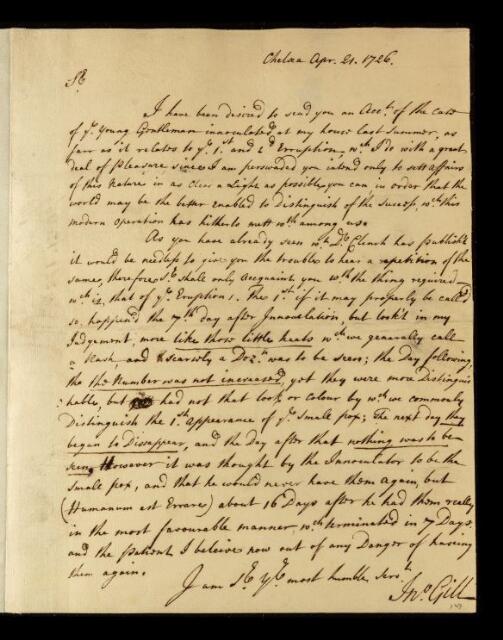 Chelsea Apr. 21. 1726.
Sr.
I have been desired to send you an Acct. of the case
of ye. Young Gentleman innoculated at my house last Summer, as
farr as it relates to ye. 1st. and 2d Erruption, wch. I do with a great
deal of Pleasure since I am perswaded you intend only to sett affairs
of this Nature in as clear a Light as possible you can in order that the
world may be the better enabled to Distinguish of the Success, wch. this
modern operation has hitherto mett wth. among us.
As you have already seen wt. Dr. Clinch has Publish'd
it would be needless to give you the trouble to hear a repetition of the
same, therefore Sr. shall only acquaint you wth. the thing required
wch is, that of ye. Eruptions. The 1st. if it may properly be call'd
so, happen'd the 7th. day after Innoculation, but look'd in my
Judgement, more like those little heats wch. we generally call
a Rash, and scarsely a Dozn. was to be seen; the Day following,
the the Number was not increased, yet they were more Distinguis
:hable, but had not that look or Colour by wch. we commonly
Distinguish the 1st. appearance of ye. Small pox; The next day they
began to Dissappear, and the Day after that nothing was to be
seen. However it was thought by the Innoculator to be the
Small pox, and that he would never have them again, but
(Humanum est Errare) about 16 Days after he had them really
in the most favourable manner wch. terminated in 7 Days
and the Patient I beleive now out of any Danger of having
them again.
I am Sr. Yr. most humble Servt.
Jno. Gill